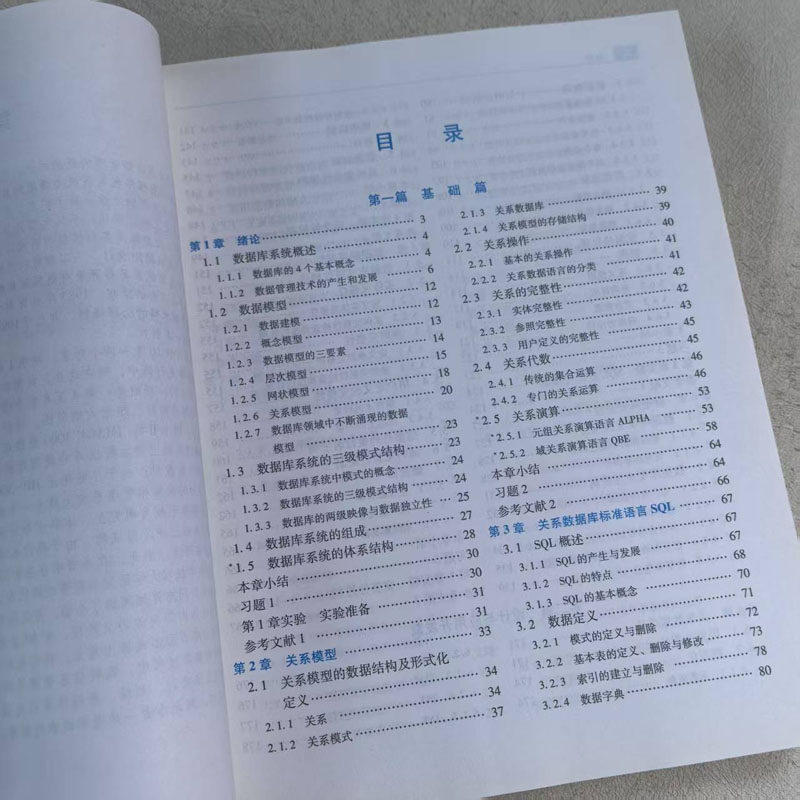 目 录
第一篇 基 础 篇
第1章 绪论 3
1.1 数据库系统概述 4
1.1.1 数据库的4个基本概念 4
1.1.2 数据管理技术的产生和发展 6
1.2 数据模型 12
1.2.1 数据建模 12
1.2.2 概念模型 13
1.2.3 数据模型的三要素 14
1.2.4 层次模型 15
1.2.5 网状模型 18
1.2.6 关系模型 20
1.2.7 数据库领域中不断涌现的数据
模型 23
1.3 数据库系统的三级模式结构 23
1.3.1 数据库系统中模式的概念 24
1.3.2 数据库系统的三级模式结构 24
1.3.3 数据库的两级映像与数据独立性 25
1.4 数据库系统的组成 27
*1.5 数据库系统的体系结构 28
本章小结 30
习题1 30
第1章实验 实验准备 31
参考文献1 31
第2章 关系模型 33
2.1 关系模型的数据结构及形式化
定义 34
2.1.1 关系 34
2.1.2 关系模式 37
2.1.3 关系数据库 39
2.1.4 关系模型的存储结构 39
2.2 关系操作 40
2.2.1 基本的关系操作 41
2.2.2 关系数据语言的分类 41
2.3 关系的完整性 42
2.3.1 实体完整性 42
2.3.2 参照完整性 43
2.3.3 用户定义的完整性 45
2.4 关系代数 45
2.4.1 传统的集合运算 46
2.4.2 专门的关系运算 46
*2.5 关系演算 53
*2.5.1 元组关系演算语言ALPHA 53
*2.5.2 域关系演算语言QBE 58
本章小结 64
习题2 64
参考文献2 66
第3章 关系数据库标准语言SQL 67
3.1 SQL概述 67
3.1.1 SQL的产生与发展 67
3.1.2 SQL的特点 68
3.1.3 SQL的基本概念 70
3.2 数据定义 71
3.2.1 模式的定义与删除 72
3.2.2 基本表的定义、删除与修改 73
3.2.3 索引的建立与删除 78
3.2.4 数据字典 80